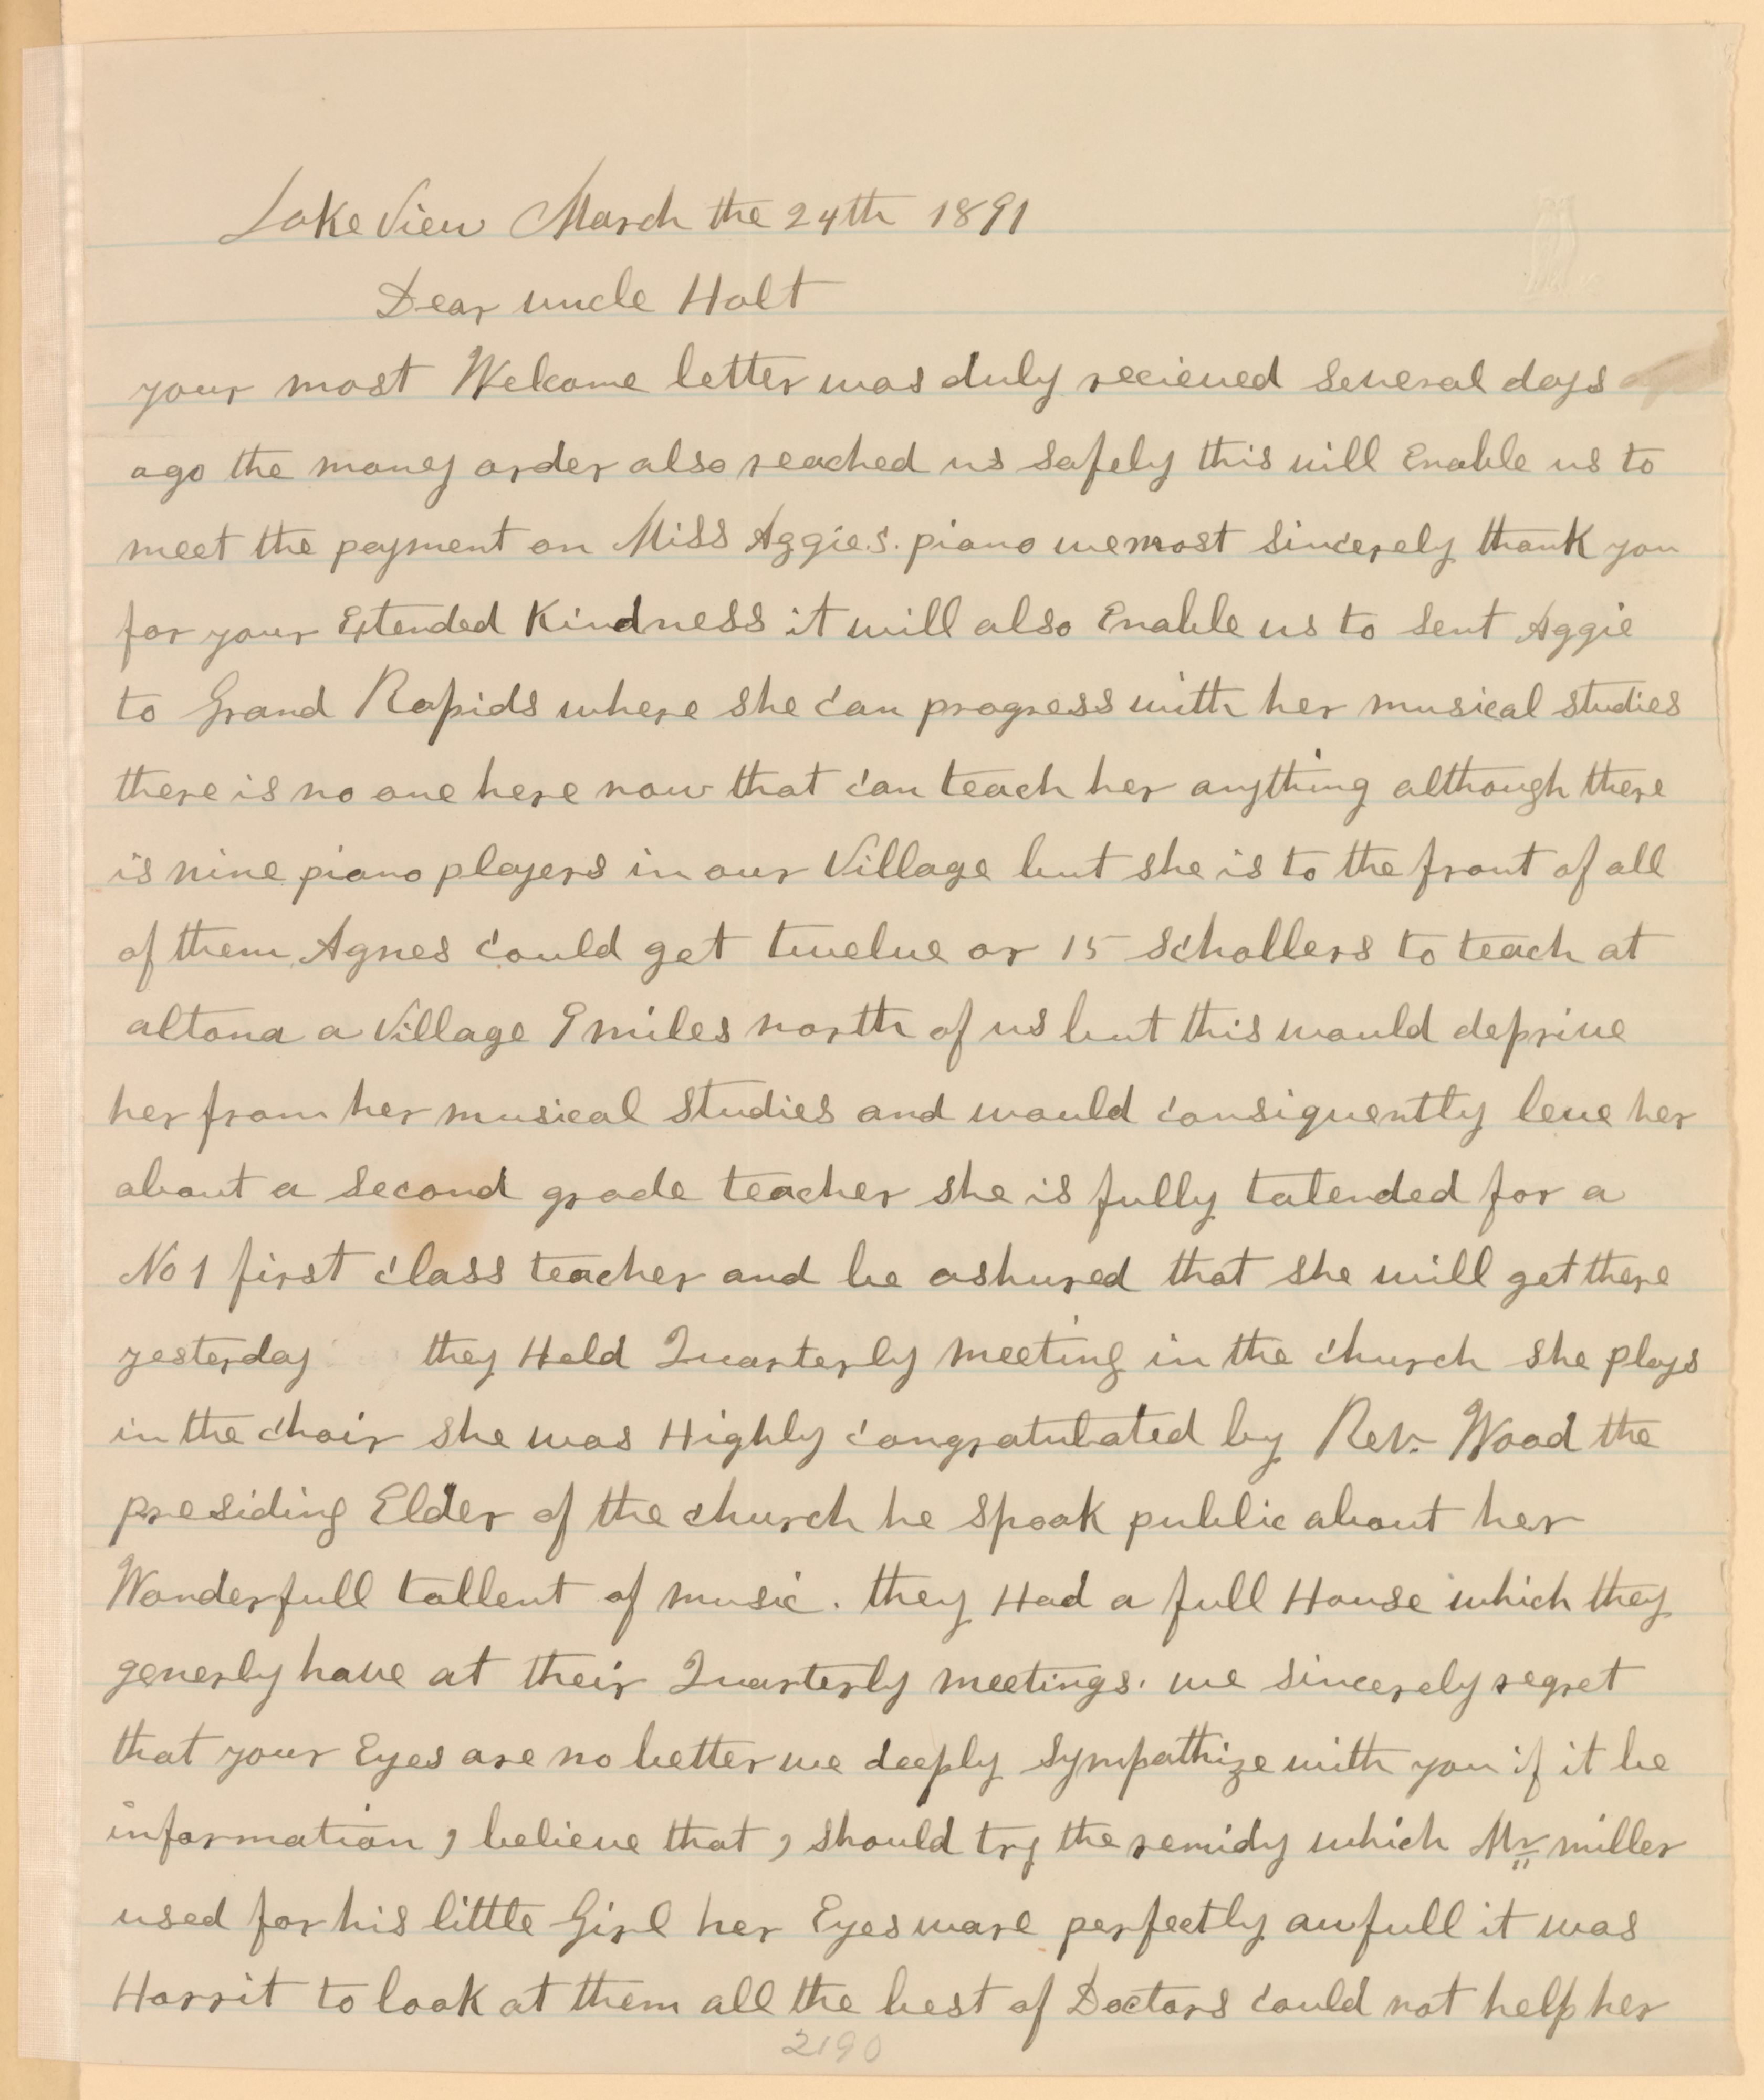 Lake View March the 24th 1891
Dear uncle Holt
your most Welcome letter was duly recieved Several days
ago the money order also reached us safely this will Enable us to
meet the payment on Miss Aggie.s. piano we most sincerely thank you
for your Extended Kindness it will also Enable us to sent Aggie
to Grand Rapids where she can progress with her musical studies
there is no one here now that can teach her anything although there
is nine piano players in our Village but she is to the front of all
of them Agnes could get twelve or 15 schollers to teach at
altona a Village 9 miles north of us but this would deprive
her from her musical studies and would consiquently leve her
about a second grade teacher she is fully talended for a
No 1 first class teacher and be ashured that she will get there
yesterday they Held Quarterly meeting in the church she plays
in the choir she was Highly congratulated by Rev. Wood the
presiding Elder of the church he spoak public about her
Wonderfull tallent of music. they Had a full House which they
generly have at their Quarterly meetings. we sincerely regret
that your Eyes are no better we deeply sympathize with you if it be
information I believe that I should try the remidy which Mr miller
used for his little Girl her Eyes ware perfectly awfull it was
Horrit to look at them all the best of Doctors could not help her
2190